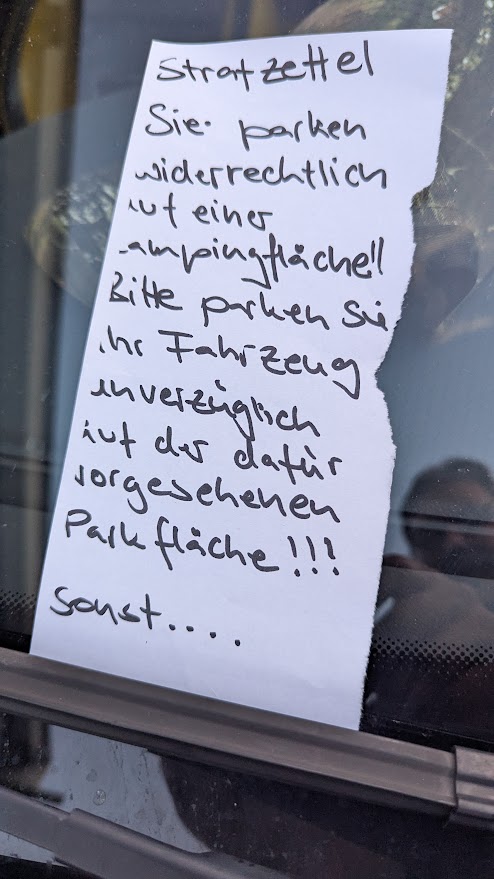 Strafzettel
Sie parken
widerrechtlich
auf einer
Campingfläche!!
Bitte parken Sie
ihr Fahrzeug
unverzüglich
auf der dafür
vorgesehenen
Parkfläche!!!
Sonst....